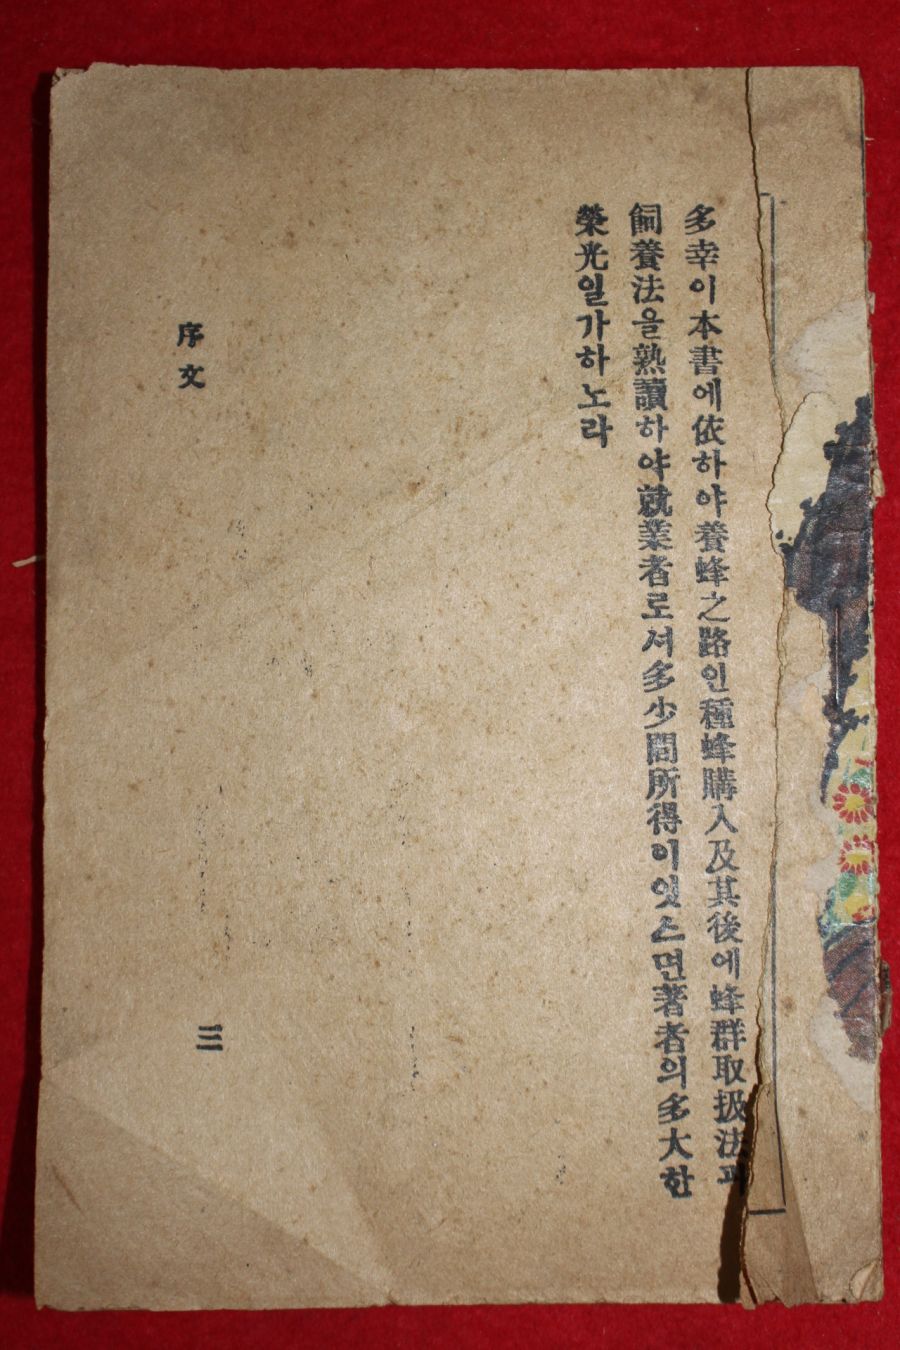 多幸이本書에依하야養蜂之路인種蜂購入及其後에蜂群取扱法과
飼養法을熟讀하야就業者로셔多少間所得이잇스면著者의多大한
榮光일가하노라
序文
三